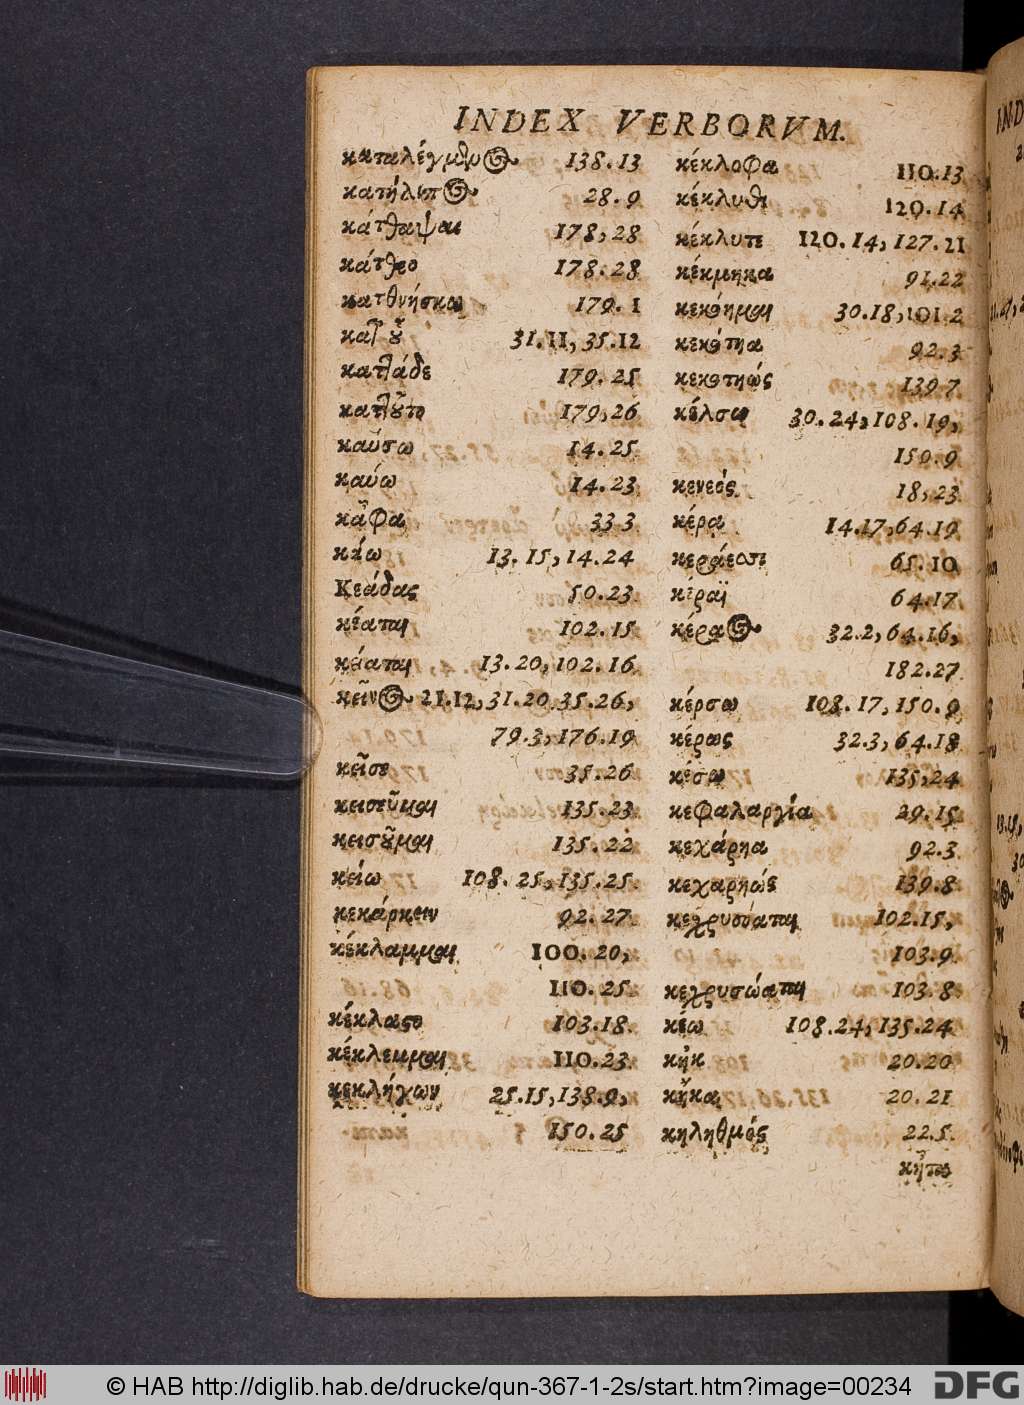 INDEX VERBORVM.
καταλέγμενος 138.13
κατήλιπος 28.9
κάτθαψαι 178,28
κάτθεο 178.28
κατθνήσκω 179.1
κατ' οὖ 31.11, 35.12
κατλάδε 179.25
κατλοῦτο 179,26
καύσω 14.25
καύω 14.23
κᾆφα 33 3
κάω 13.15, 14.24
Κεάδας 50.23
κέαται 102.15
κείαται 13.20, 102.16
κεῖνος 21.12, 31.20 35.26,
79.3, 176.19
κεῖσε 35.26
κεισεῦμαι 135.23
κεισοῦμαι 135.22
κείω 108.25, 135.25
κεκάρκειν 92.27
κέκλαμμαι 100.20,
110.25
κέκλαστο 103.18
κέκλεμμαι 110.23
κεκλήγων 25.15, 138.9,
150.25
κέκλοφα 110.13
κέκλυθι 120.14
κέκλυτε 120.14, 127.21
κέκμηκα 91.22
κεκόημαι 30.18, 101.2
κεκότηα 92.3
κεκοτηώς 139 7
κέλσω 30.24, 108.19,
150.9
κενεός 18,23
κέρα 14.17, 64.19
κεράεσσι 65.10
κέραϊ 64.17
κέραος 32.2, 64.16,
182.27
κέρσω 108.17, 150.9
κέρως 32.3, 64.18
κεσω 135,24
κεφαλαργία 29.15
κεχάρηα 92.3
κεχαρηώς 139.8
κεχρυσόαται 102.15,
103.9
κεχρυσώαται 103.8
κέω 108.24, 135.24
κἠκ 20.20
κἦκα 20.21
κηληθμός 22.5
κῆπος
© HAB http://diglib.hab.de/drucke/qun-367-1-2s/start.htm?image=00234
DFG